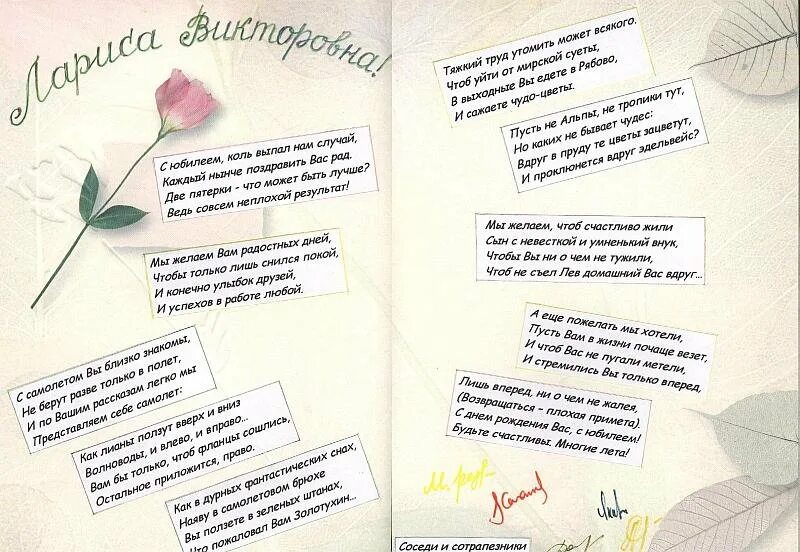 Лариса Викторовна!
С юбилеем, коль выпал нам случай,
Каждый нынче поздравить Вас рад.
Две пятерки - что может быть лучше?
Ведь совсем неплохой результат!
Мы желаем Вам радостных дней,
Чтобы только лишь снился покой,
И конечно улыбок друзей,
И успехов в работе любой.
С самолетом Вы близко знакомы,
Не берут разве только в полет,
И по Вашим рассказам легко мы
Представляем себе самолет:
Как лианы ползут вверх и вниз
Волноводы, и влево, и вправо...
Вам бы только, чтоб фланцы сошлись,
Остальное приложится, право.
Как в дурных фантастических снах,
Наяву в самолетовом брюхе
Вы ползете в зеленых штанах,
Что пожаловал Вам Золотухин...
Тяжкий труд утомить может всякого.
Чтоб уйти от мирской суеты,
В выходные Вы едете в Рябово,
И сажаете чудо-цветы.
Пусть не Альпы, не тропики тут,
Но каких не бывает чудес:
Вдруг в пруду те цветы зацветут,
И проклюнется вдруг эдельвейс?
Мы желаем, чтоб счастливо жили
Сын с невесткой и умненький внук,
Чтобы Вы ни о чем не тужили,
Чтоб не съел Лев домашний Вас вдруг...
А еще пожелать мы хотели,
Пусть Вам в жизни почаще везет,
И чтоб Вас не пугали метели,
И стремились Вы только вперед,
Лишь вперед, ни о чем не жалея,
(Возвращаться - плохая примета).
С днем рождения Вас, с юбилеем!
Будьте счастливы. Многие лета!
Соседи и сотрапезники